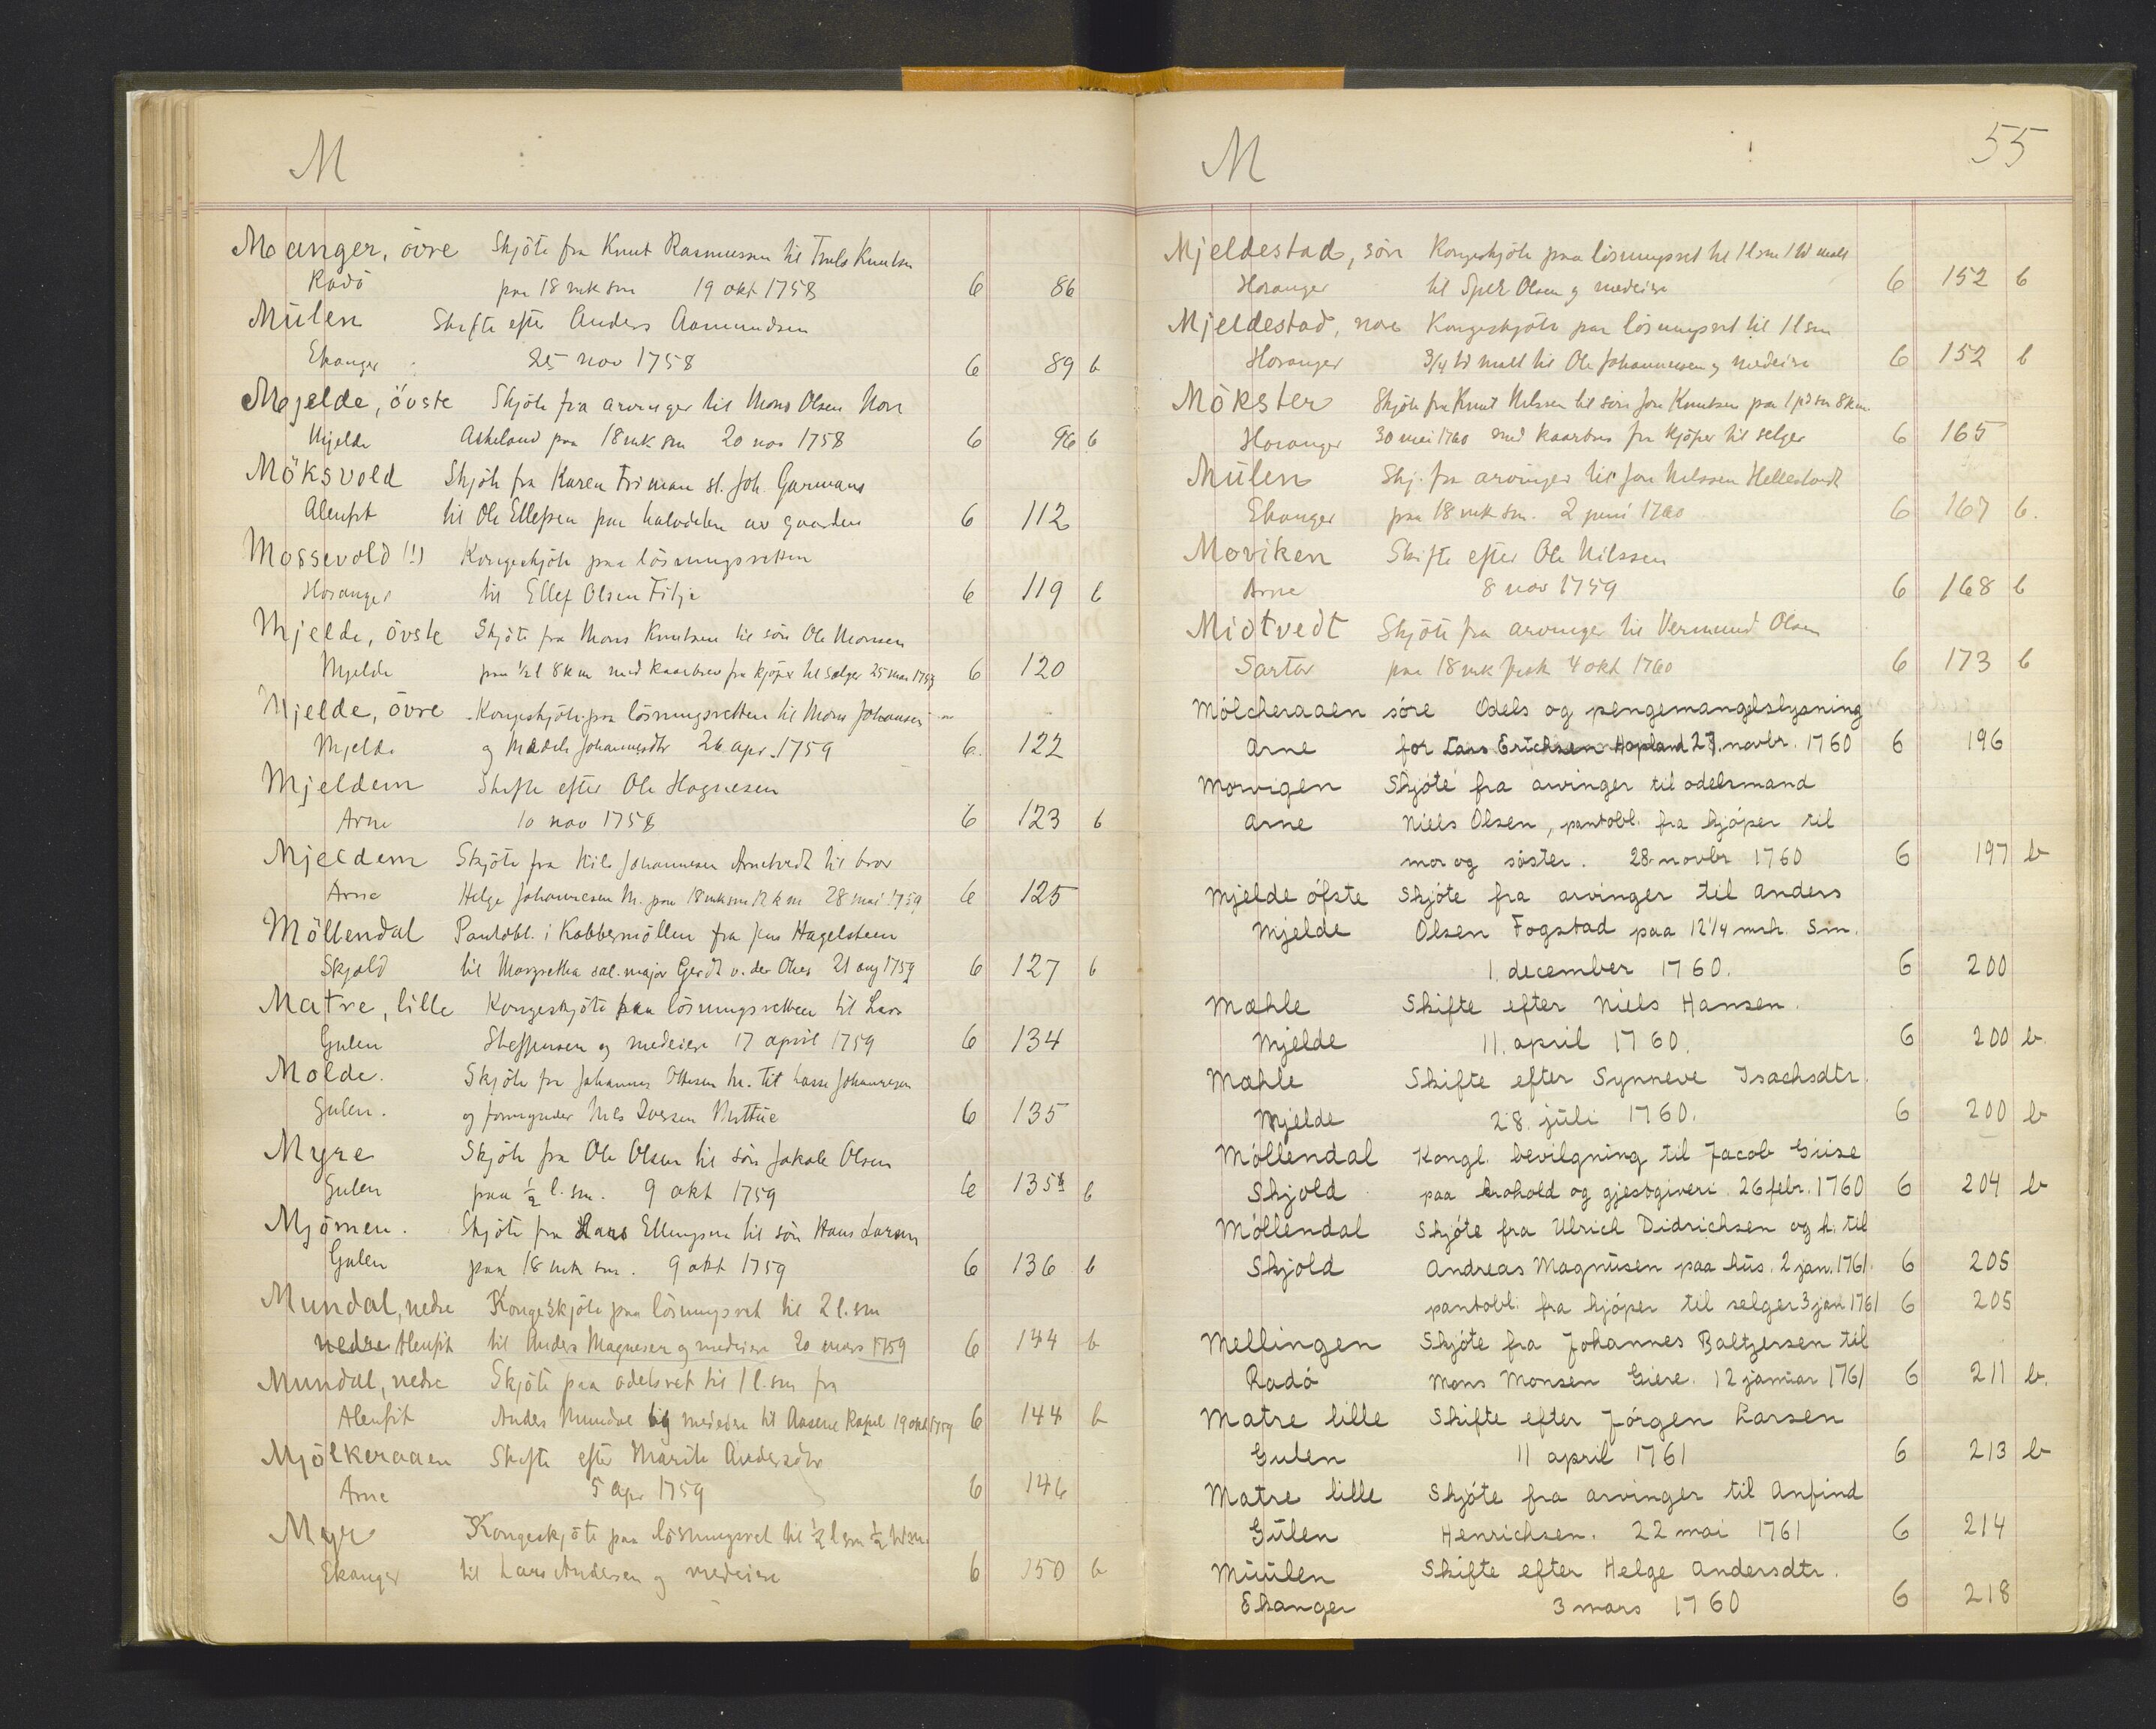 M
Manger, övre Skjöte fra Knut Rasmussen til Truls Knutsen
Radö paa 18 mk sm 19 okt 1758 6 86
Mülen Skifte efter Anders Aamundsen
Ekanger 25 nov 1758 6 89 b
Mjelde, övste Skjöte fra arvinger til Mons Olsen Norr
Mjelde Askeland paa 18 mk sm 20 nov 1758 6 96 b
Möksvold Skjöte fra Karen Friman sl. Joh. Garmans
Alenfit til Ole Ellefsen paa halvdelen av gaarden 6 112
Mossevold (!) Kongeskjöte paa lösningsretten
Hosanger til Ellef Olsen Tilje 6 119 b
Mjelde, övste Skjöte fra Mons Knutsen til sön Ole Monsen
Mjelde paa ½ l 8 km med kaarbrev fra kjöper til sælger 25 mai 1759 6 120
Mjelde, övre Kongeskjöte paa lösningsretten til Mons Johansen
Mjelde og Johannesdtr 26 apr. 1759 6. 122
Mjeldem Skifte efter Ole Hognesen
Arne 10 nov 1758 6 123 b
Mjeldem Skjöte fra Nils Johannesen Arnetvedt til bror
Arne Helge Johannesen M. paa 18 mk sm 12 k m 28 mai 1759 6 125
Möllendal Pantobl. i Kobbermöllen fra Jens Hagelsteen
Skjold til Margretha sal. major Gerdt v. der Ohes 21 aug 1759 6 127 b
Matre, lille Kongeskjöte paa lösningsretten til Lars
Gulen Steffensen og medeiere 17 april 1759 6 134
Molde. Skjöte fra Johannes Ottesen m. til Lasse Johannesen
Gulen. og formynder Nils Iversen 6 135
Myre Skjöte fra Ole Olsen til sön Jakob Olsen
Gulen paa ½ l. sm. 9 okt 1759 6 135 b
Mjömen. Skjöte fra Lars Ellingsen til sön Hans Larsen
Gulen paa 18 mk sm. 9 okt 1759 6 136 b
Mundal, nedre Kongeskjöte paa lösningsret til 2 l. sm
nedre Alenfit til Anders Magnesen og medeiere 20 mars 1759 6 144 b
Mundal, nedre Skjöte paa odelsret til 1 l. sm fra
Alenfit Anders Mundal og medeiere til Aasene 19 okt 1759 6 144 b
Mjölkeraaen Skifte efter Marite Andersdtr
Arne 5 apr 1759 6 146
Myr Kongeskjöte paa lösningsret til ½ l sm ½ hd m.
Ekanger til Lars Andersen og medeiere 6 150 b
M 55
Mjeldestad, sörr Kongeskjöte paa lösningsret til 1 l sm 1 td malt
Hosanger til Olsen og medeiere 6 152 b
Mjeldestad, norr Kongeskjöte paa lösningsret til 1 l sm
Hosanger 3/4 td malt til Ole Johannessen og medeiere 6 152 b
Mökster Skjöte fra Knut Nilssen til sön Jon Knutsen paa 1 pd sm 8 km.
Hosanger 30 mai 1760 med kaarbrev fra kjöper til selger 6 165
Mülen Skj. fra arvinger til Jon Nilssen Hellestvedt
Ekanger paa 18 mk sm. 2 juni 1760 6 167 b.
Morviken Skifte efter Ole Nilssen
Arne 8 nov 1759 6 168 b
Midtvedt Skjöte fra arvinger til Vermund Olsen
Sartor paa 18 mk fisk 4 okt 1760 6 173 b
Mölcheraaen söre Odels og pengemangelslysning
Arne for Lars Erichsen Hopland 27. novbr. 1760 6 196
Morvigen Skjöte fra arvinger til odelsmand
Arne Niels Olsen, pantobl. fra kjöper til
mor og söster. 28 novbr 1760 6 197 b
Mjelde öfste Skjöte fra arvinger til Anders
Mjelde Olsen Fogstad paa 12 1/4 mrk. Sm.
1. december 1760. 6 200
Mæhle Skifte efter Niels Hansen.
Mjelde 11. april 1760. 6 200 b.
Mæhle Skifte efter Synneve Isachsdtr.
Mjelde 28. juli 1760. 6 200 b
Möllendal Kongl. bevilgning til Jacob Giise
Skjold paa krohold og gjestgiveri. 26 febr. 1760 6 204 b
Möllendal Skjöte fra Ulrich Didrichsen og h. til
Skjold Andreas Magnüsen paa hüs. 2 jan. 1761. 6 205
pantobl. fra kjöper til selger 3 jan 1761 6 205
Mellingen Skjöte fra Johannes Baltzersen til
Radö Mons Monsen Giere. 12 januar 1761 6 211 b.
Matre lille Skifte efter Jörgen Larsen
Gulen 11 april 1761 6 213 b
Matre lille Skjöte fra arvinger til Anfind
Gülen Henrichsen. 22 mai 1761 6 214
Müülen Skifte efter Helge Andersdtr.
Ekanger 3 mars 1760 6 218